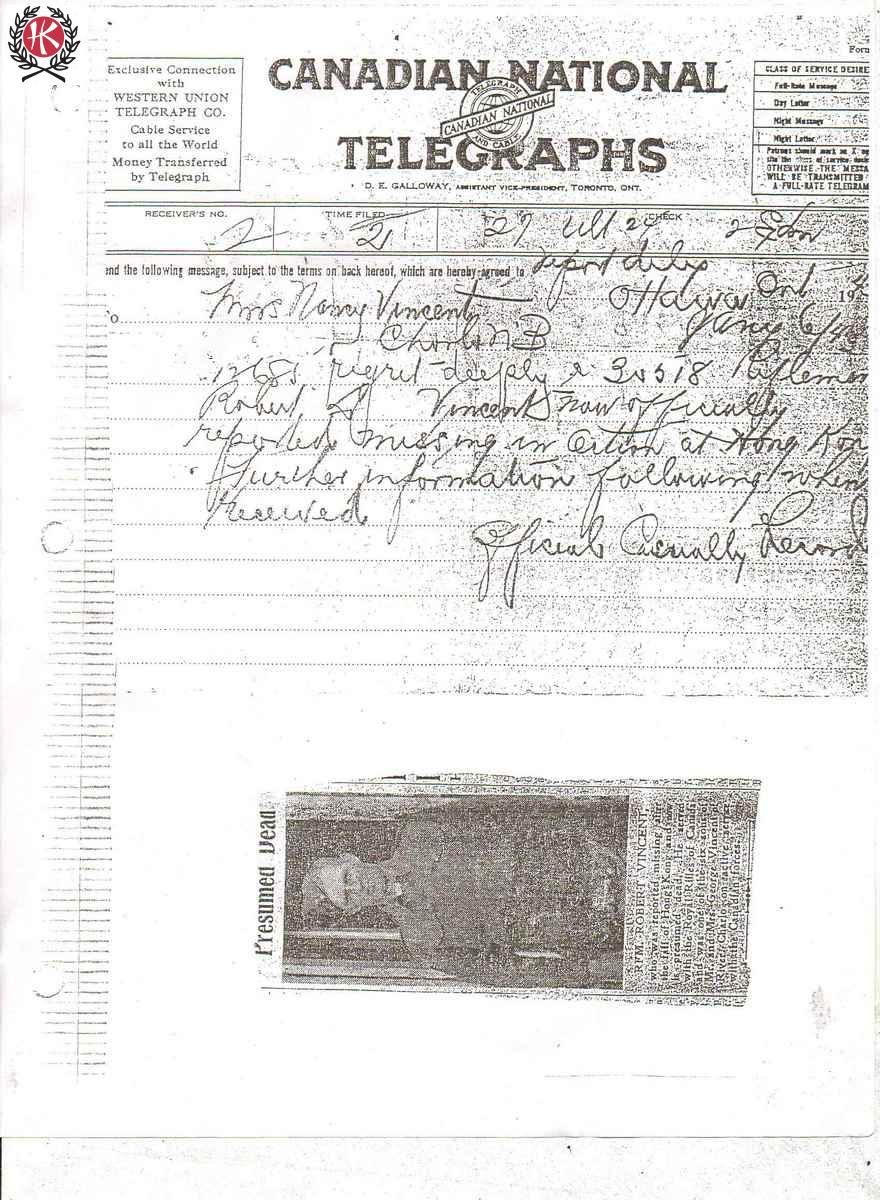 HK
Form
Exclusive Connection
with
WESTERN UNION
TELEGRAPH CO.
Cable Service
to all the World
Money Transferred
by Telegraph
CANADIAN NATIONAL
TELEGRAPH
CANADIAN NATIONAL
AND CABLE
TELEGRAPHS
D. E. GALLOWAY, ASSISTANT VICE-PRESIDENT, TORONTO, ONT.
CLASS OF SERVICE DESIRE
Full-Rate Message
Day Letter
Night Message
Night Letter
Patrons should mark an X
OTHERWISE THE MESSA
WILL BE TRANSMITTED
A FULL-RATE TELEGRAM
RECEIVER'S NO.
TIME FILED
CHECK
2 21 27
report dely
end the following message, subject to the terms on back hereof, which are hereby agreed to
Ottawa Ont
192
Mrs Nancy Vincent
o
Charlo N B
12685 regret deeply E 30518 Rifleman
Robert Vincent now officially
reported missing in action at Hong Kon
further information following when
received
Official Casualty Record
Presumed Dead
RFM. ROBERT VINCENT
who was reported missing after
the fall of Hong Kong and now
is presumed dead. He served
with the Royal Rifles of Canada
Mr. and Mrs. George Vincent
with the Canadian forces.